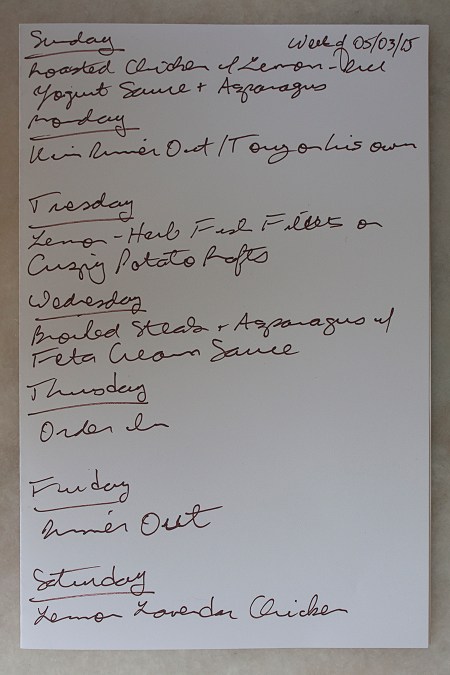 Sunday Week of 05/03/15
Roasted Chicken w/ Lemon-Dill
Yogurt Sauce + Asparagus
Monday
Kim Dinner Out / Tony on his own
Tuesday
Lemon-Herb Fish Fillets on
Crispy Potato Rafts
Wednesday
Broiled Steak + Asparagus w/
Feta Cream Sauce
Thursday
Order In
Friday
Dinner Out
Saturday
Lemon Lavender Chicken